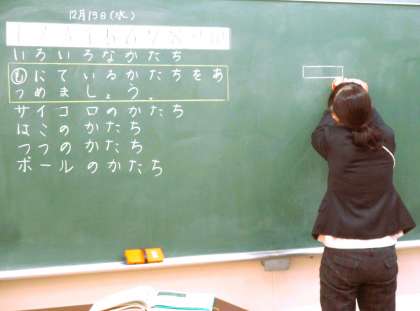 12月13日(水)
いろいろなかたち
めにているかたちをあ
つめましょう。
サイコロのかたち
はこのかたち
つつのかたち
ボールのかたち